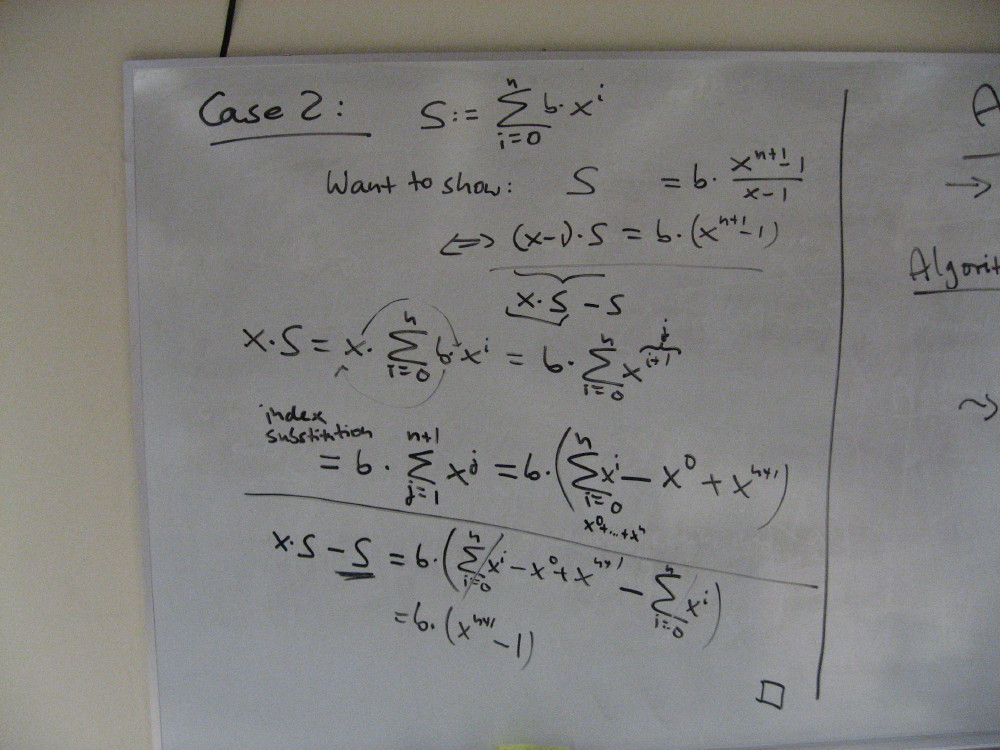 Case 2: S := ∑_{i=0}^{n} b · x^i
Want to show: S = b · \frac{x^{n+1}-1}{x-1}
⟺ (x-1) · S = b · (x^{n+1}-1)
x · S - S
x · S = x · ∑_{i=0}^{n} b · x^i = b · ∑_{i=0}^{n} x^{i+1} j
index
substitution
= b · ∑_{j=1}^{n+1} x^j = b · (∑_{i=0}^{n} x^i - x^0 + x^{n+1})
x^0+...+x^n
x · S - S = b · (∑_{i=0}^{n} x^i - x^0 + x^{n+1} - ∑_{i=0}^{n} x^i)
= b · (x^{n+1} - 1)
□
A
→
Algorit
~